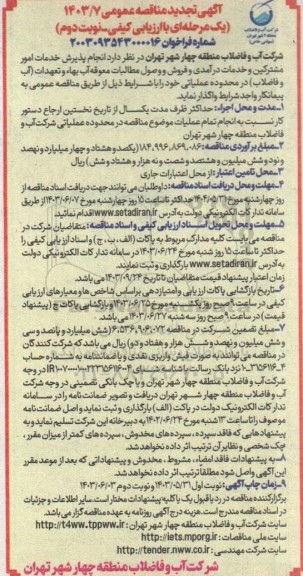 آگهی تجدید مناقصه عمومی ۱۴۰۳/۷
(یک مرحله‌ای با ارزیابی کیفی-نوبت دوم)
شماره فراخوان ۲۰۰۳۰۹۵۴۳۰۰۰۰۱۶
شرکت آب و فاضلاب منطقه چهار شهر تهران در نظر دارد انجام پذیرش خدمات امور
مشترکین و خدمات درآمدی و فروش و وصول مطالبات معوقه آب بهاء و تعهدات (آب
و فاضلاب) در محدوده عملیاتی خود را با شرایط ذیل از طریق مناقصه عمومی به
پیمانکار واجد شرایط واگذار نماید.
۱-مدت و محل اجراء: حداکثر ظرف مدت یکسال از تاریخ نخستین ارجاع دستور
کار نسبت به انجام تمام عملیات موضوع مناقصه در محدوده عملیاتی شرکت آب و
فاضلاب منطقه چهار شهر تهران
۲-مبلغ برآوردی مناقصه: ۱۸۴,۹۹۶,۸۶۹,۰۸۶ (یکصد و هشتاد و چهار میلیارد و نهصد
و نود و شش میلیون و هشتصد و شصت و نه هزار و هشتاد و شش) ریال
۳-محل تامین اعتبار: از محل اعتبارات جاری
۴-مهلت و محل دریافت اسناد مناقصه: داوطلبان می‌توانند جهت دریافت اسناد مناقصه از
روز چهارشنبه مورخ ۱۴۰۳/۰۵/۳۱ حداکثر تا ساعت ۱۵ روز چهارشنبه مورخ ۱۴۰۳/۰۶/۰۷ از طریق
سامانه تدارکات الکترونیکی دولت به آدرس www.setadiran.ir اقدام نمائید.
۵-مهلت و محل تحویل اسناد ارزیابی کیفی و اسناد مناقصه: متقاضیان شرکت در
مناقصه می‌بایست کلیه مدارک مربوط به پاکات (الف، ب، ج) و اسناد ارزیابی کیفی را
حداکثر تا ساعت ۱۵ روز شنبه مورخ ۱۴۰۳/۰۶/۲۴ در سامانه تدارکات الکترونیکی دولت
به آدرس www.setadiran.ir بارگذاری و ثبت نمایند.
زمان اعتبار پیشنهاد قیمت متقاضیان تا تاریخ ۱۴۰۳/۰۹/۲۴ می‌باشد.
۶-تاریخ بازگشایی پاکات ارزیابی و امتیازدهی براساس شاخص‌ها و معیارهای ارزیابی
کیفی در ساعت ۹ صبح روز یکشنبه مورخ ۱۴۰۳/۰۶/۲۵ و بازگشایی پاکات ج (پیشنهاد
قیمت) در ساعت ۹ صبح روز سه شنبه ۱۴۰۳/۰۶/۲۷ می‌باشد.
۷-مبلغ تضمین شرکت در مناقصه ۶,۵۳۶,۹۰۶,۰۷۲ (شش میلیارد و پانصد و سی
و شش میلیون و نهصد و شش هزار و هفتاد و دو) ریال می‌باشد که شرکت کنندگان
در مناقصه می‌توانند به صورت فیش واریزی نقدی و یا ضمانتنامه به شماره حساب
نزد بانک رسالت در وجه
شرکت آب و فاضلاب منطقه چهار شهر تهران و یا چک بانکی تضمینی در وجه شرکت
آب و فاضلاب منطقه چهار شهر تهران دریافت و تصویر ضمانت نامه را در سامانه
تدارکات الکترونیک دولت در پاکت (الف) بارگذاری و ثبت نماید و اصل ضمانت‌نامه
موصوف را تا ساعت ۱۳ شنبه مورخ به دبیرخانه این شرکت تسلیم نماید و به
پیشنهادهایی که فاقد سپرده، سپرده‌های مخدوش، سپرده‌های کمتر از میزان مقرر،
چک شخصی و نظایر آن ترتیب اثر داده نخواهد شد.
۸-به پیشنهادات فاقد امضاء، مشروط، مخدوش و پیشنهاداتی که بعد از موعد مقرر
این آگهی واصل شود مطلقاً ترتیب اثر داده نخواهد شد.
۹-زمان چاپ آگهی: نوبت اول ۱۴۰۳/۰۵/۳۱ و نوبت دوم ۱۴۰۳/۰۶/۰۳
برگزارکننده مناقصه در رد یا قبول یک یا کلیه پیشنهادات مختار است. سایر اطلاعات و جزئیات
در اسناد مناقصه مندرج است. هزینه درج آگهی روزنامه به عهده مناقصه گزار می‌باشد.
سایت شرکت آب و فاضلاب منطقه چهار شهر تهران: http://t4ww.tppww.ir
سایت ملی مناقصات: http://iets.mporg.ir
سایت شرکت مهندسی: http://tender.nww.co.ir
شرکت آب و فاضلاب منطقه چهار شهر تهران